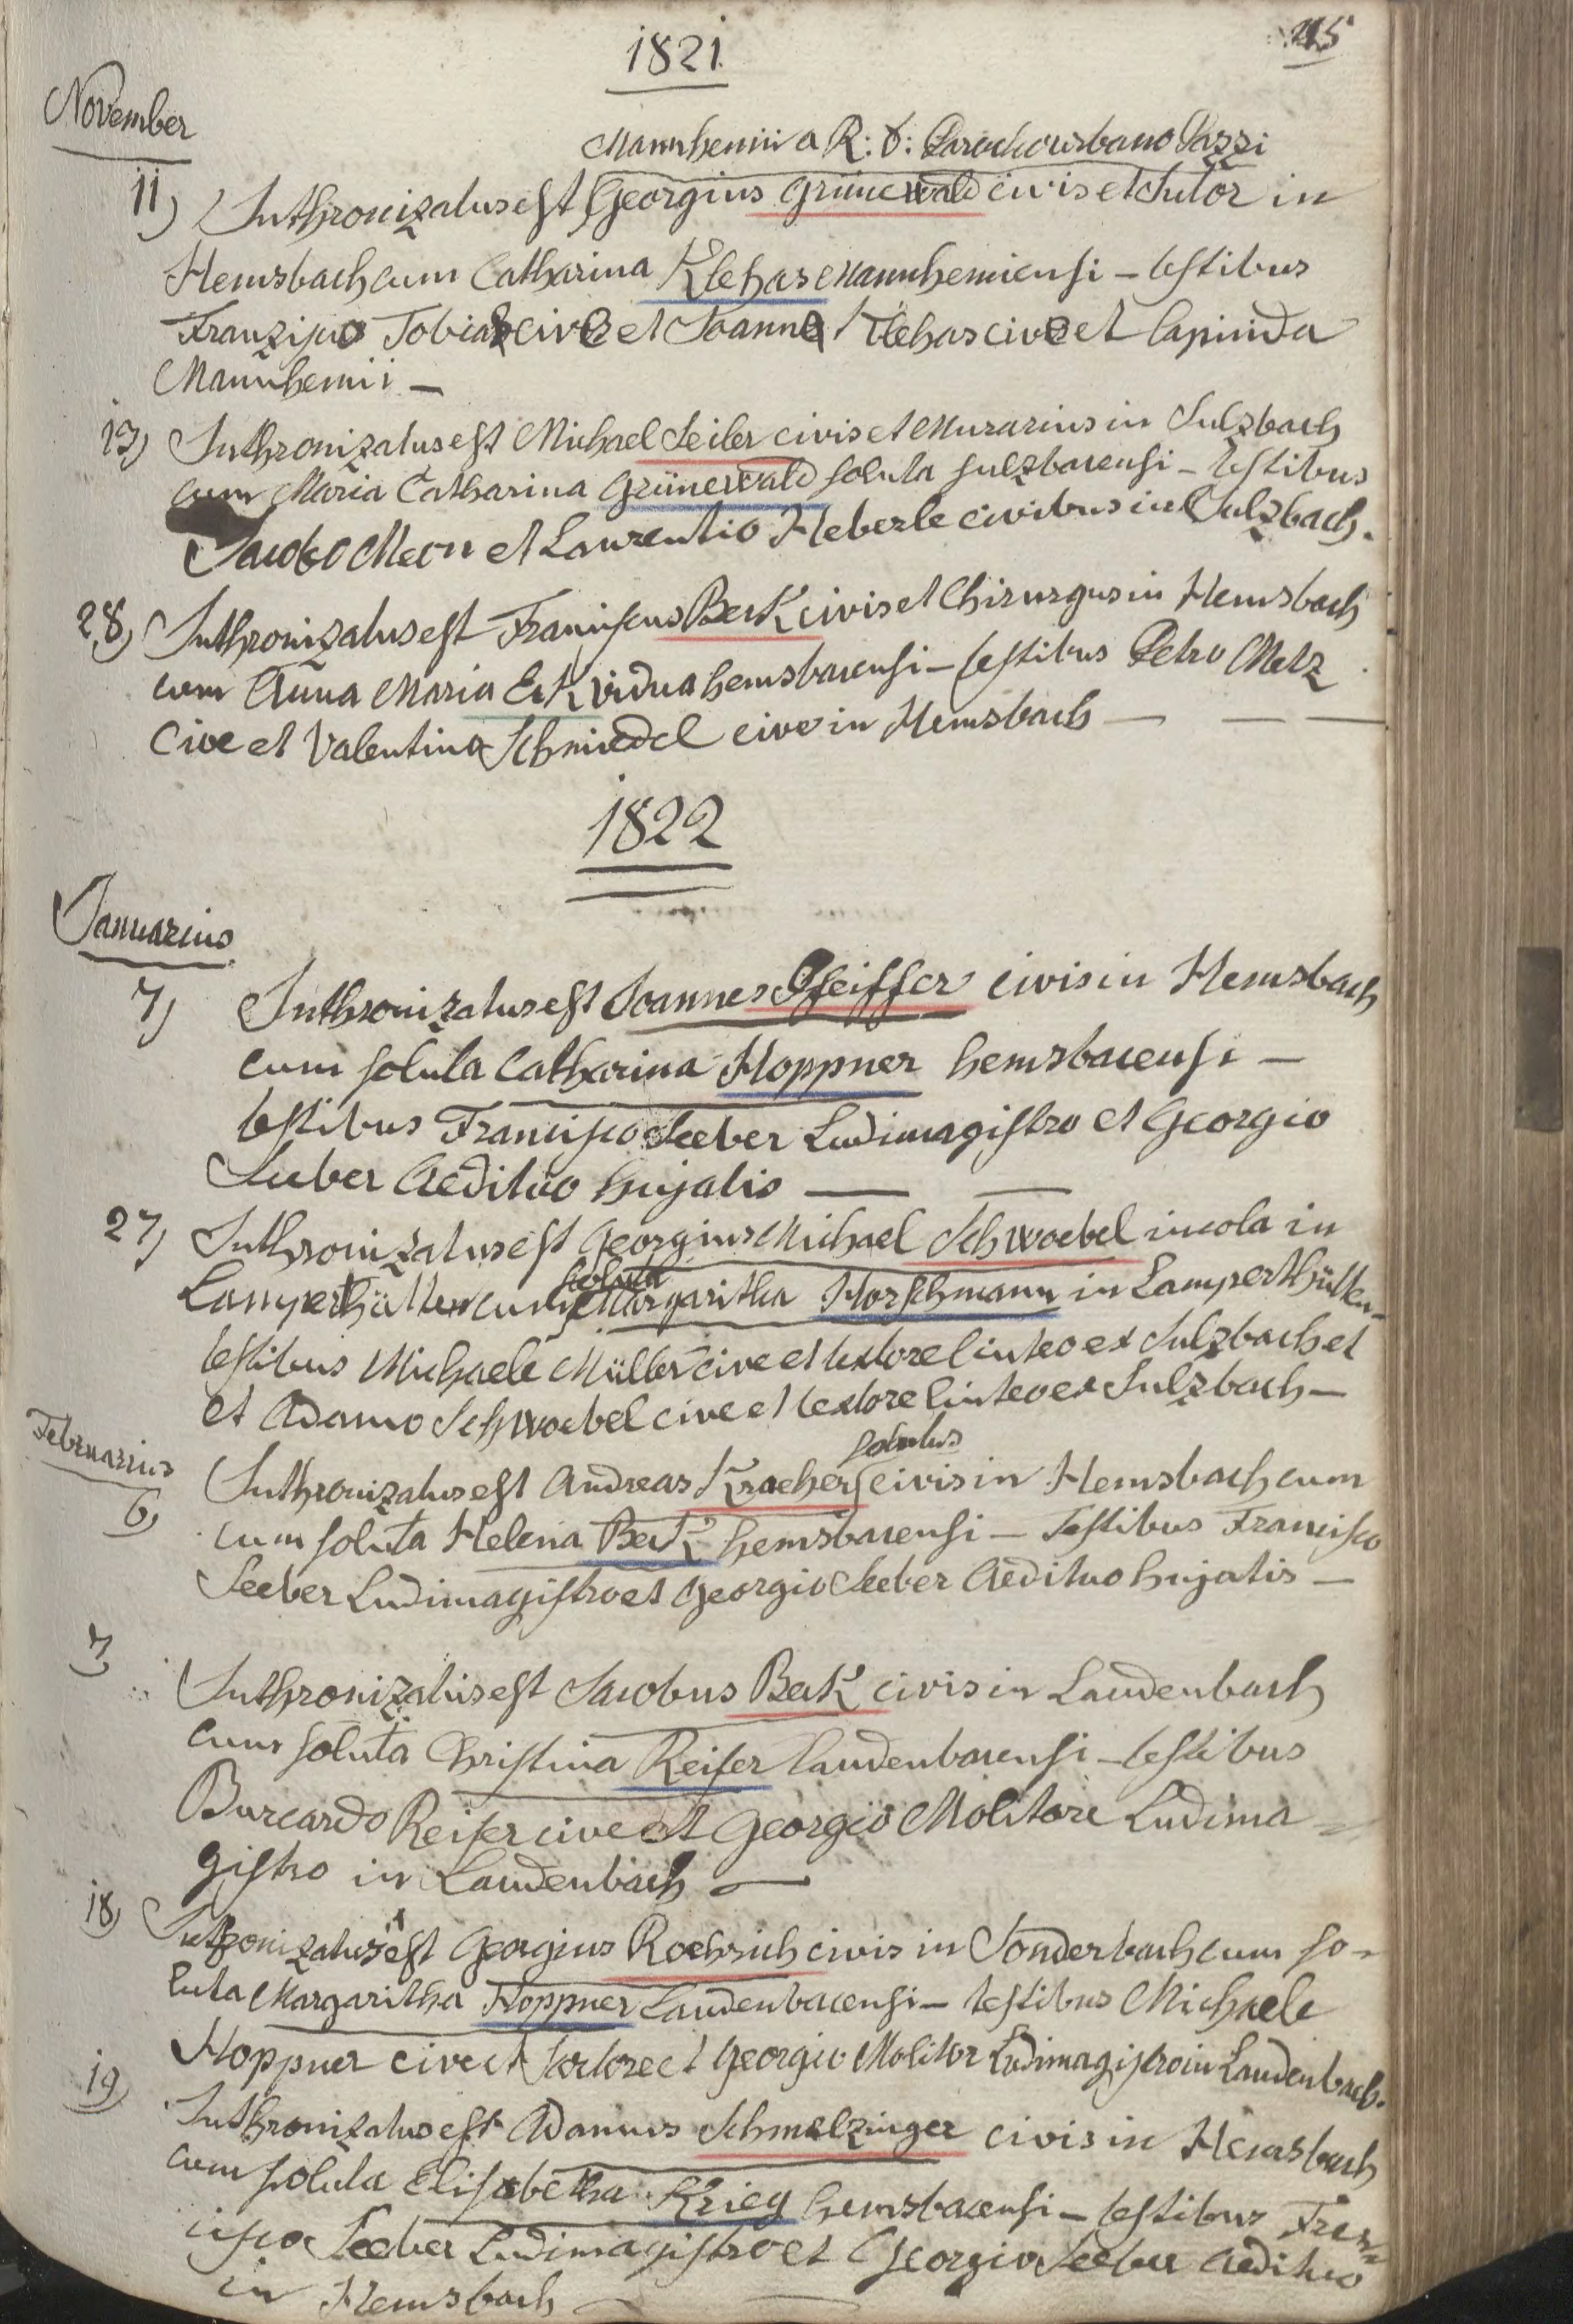 1821.
November
Mannhemii a R: D: Parocho urbano
11) Inthronizatus est Georgius Grünewald civis et Sutor in
Hemsbach cum Catharina Klehas Mannhemiensi – testibus
Franzisco Tobias cive et Joanne Klehas cive et lapicida
Mannhemii –
13) Inthronizatus est Michael Seiler civis et Murarius in Sulzbach
cum Maria Catharina Grünewald soluta sulzbacensi – testibus
Jacobo et Laurentio Heberle civibus in Sulzbach.
28) Inthronizatus est Franciscus Beck civis et Chirurgus in Hemsbach
cum Anna Maria Eck vidua hemsbacensi – testibus Petro Metz
Cive et Valentino Schmiedel cive in Hemsbach — — —
1822
Januarius
7) Inthronizatus est Joannes Pfeiffer civis in Hemsbach
cum soluta Catharina Hoppner hemsbacensi –
testibus Francisco Seeber Ludimagistro et Georgio
Seeber Aedituo hujatis — —
27) Inthronizatus est Georgius Michael Schwoebel incola in
soluta
Lamperthütten cum Margaritha Horschmann in Lamperthütten –
testibus Michaele Müller cive et textore linteo ex Sulzbach et
et Adamo Schwoebel cive et textore linteo ex Sulzbach –
Februarius
solutus
6) Inthronizatus est Andreas Kracher civis in Hemsbach cum
cum soluta Helena Beck hemsbacensi – Testibus Francisco
Seeber Ludimagistro et Georgio Seeber Aedituo hujatis –
7) Inthronizatus est Jacobus Beck civis in Laudenbach
cum soluta Christina Reiser laudenbacensi – testibus
Burcardo Reiser cive et Georgio Molitore Ludima=
gistro in Laudenbach —
18) Inthronizatus est Georgius Roehrich civis in Sonderbach cum so=
luta Margaritha Hoppner Laudenbacensi – testibus Michaele
Hoppner cive et Sartore et Georgio Molitor Ludimagistro in Laudenbach.
19) Inthronizatus est Adamus Schmelzinger civis in Hemsbach
cum soluta Elisabetha Krieg hemsbacensi – testibus Fran=
cisco Seeber Ludimagistro et Georgio Seeber Aedituo
in Hemsbach —